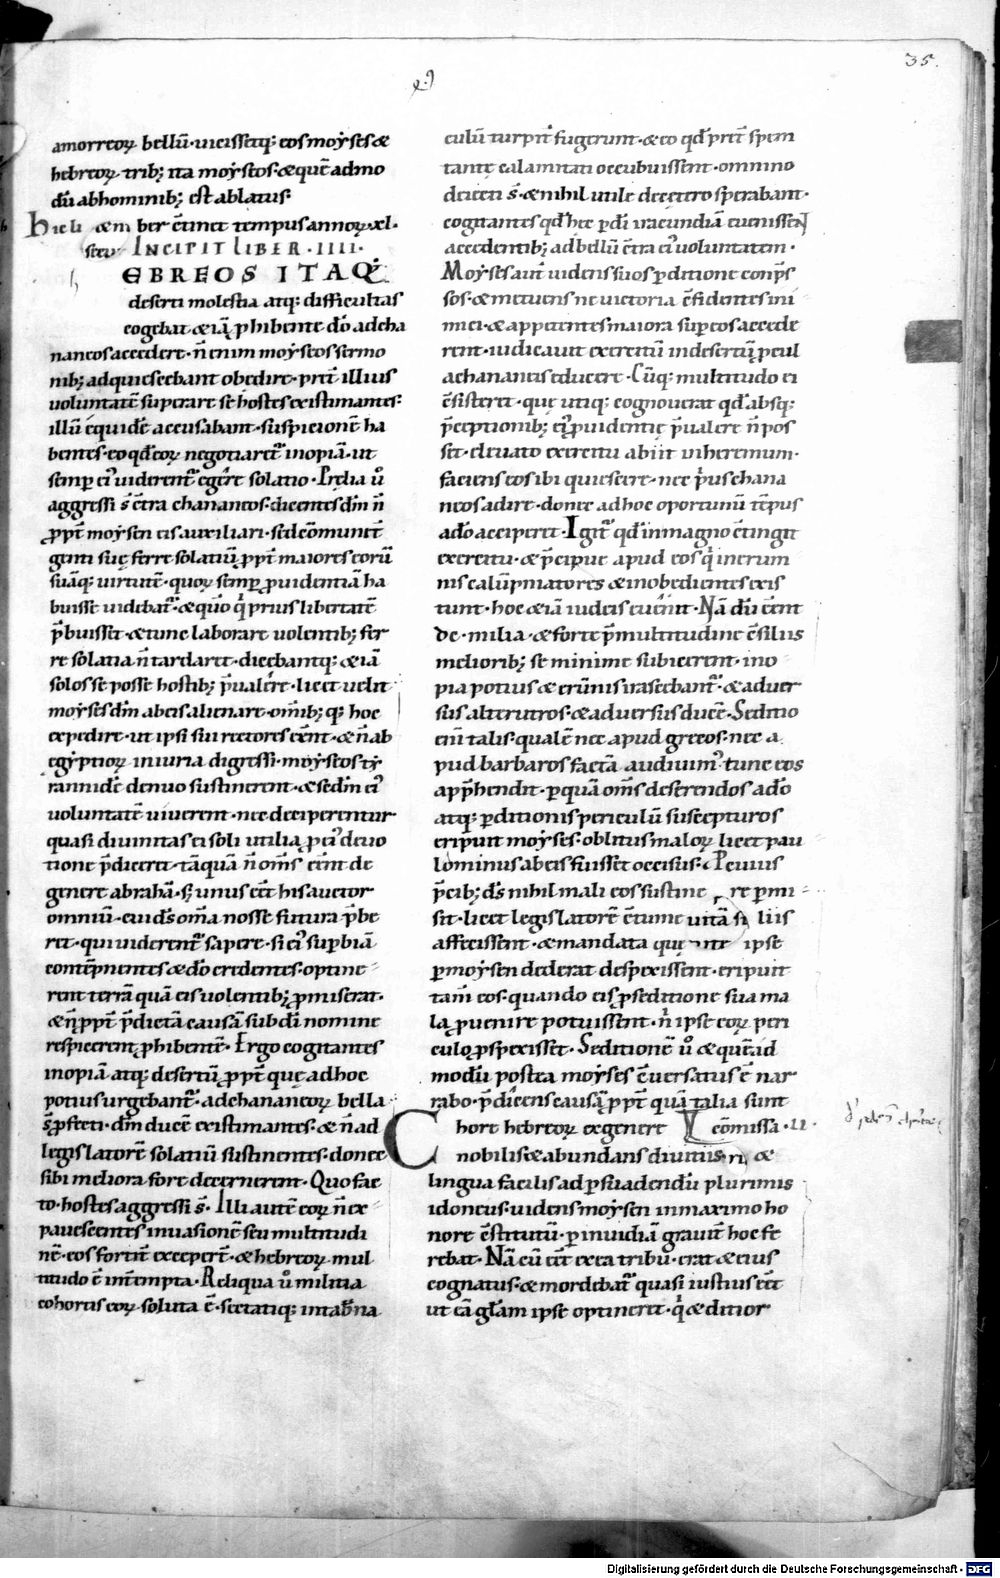 35.
amorreoꝝ bellū·uicisseꞇq; eos moẏses &
hebreoꝝ trib; ita moẏseos·& quē admo
dū ab hominib; est ablatus·
hic liber &iā continet tempus annoꝝ·xl·
INCIPIT LIBER·IIII·
EBREOS ITAQ;
deserti molestia atq; difficultas
cogebat & iā ꝓhibente dō ad cha
naneos accedere·n̄ enim moẏseos sermo
nib; adquiescebant obedire·pret̄ illius
uoluntatē superare se hostes existimantes·
illū equidē accusabant·suspicionē ha
bentes·eo qđ eoꝝ negotiaret̄ inopiā·ut
semꝑ ei' uiderent̄ egere solatio·Prelia ů
aggressi s̄ ct̄ra chananeos·dicentes dm̄ n̄
ꝓpt̄ moẏsen eis auxiliari·sed cōmunit̄
genti suę ferre solatiū ꝓpt̄ maiores eorū
suāq; uirtutē·quoꝝ semꝑ ꝓuidentiā ha
buisse uidebat̄·& quō q̇ prius libertatē
p̄buisset·& tunc laborare uolentib; fer
re solatia n̄ tardaret·dicebantq; & iā
solos se posse hostib; p̄ualere·licet uelit
moẏses dm̄ ab eis alienare·om̄ib; q; hoc
expedire·ut ipsi sui rectores eēnt·& n̄ ab
egẏptioꝝ iniuria digressi·moẏseos tẏ
rannidē denuo sustinerent·& sedm̄ ei'
uoluntatē uiuerent·nec deciperentur
quasi diuinitas ei soli utilia ꝑ ei' deuo
tione p̄diceret·tāquā n̄ oms̄ eēnt de
genere abrahā·s; unus eēt his auctor
omniū·cui dś om̄a nosse futura p̄be
ret·qui uiderent̄ sapere·si ei' suꝑbiā
contēpnentes & dō credentes·optine
rent terrā quā eis uolentib; ꝓmiserat·
& n̄ ꝓpt̄ p̄dictā causā sub dī nomine
respicerent ꝓhibentē·Ergo cogitantes
inopiā atq; desertū ꝓpt̄ quę ad hoc
potius urgebant̄·ad chananeoꝝ bella
s̄ ꝓfecti·dm̄ ducē existimantes·& n̄ ad
legislatorē solatiū sustinentes·donec
sibi meliora fore decernerent·Quo fac
to·hostes aggressi s̄·Illi autē eoꝝ n̄ ex
pauescentes inuasionē seu multitudi
nē·eos fortit̄ exceꝑt̄·& hebreoꝝ mul
titudo ē intēmpta·Reliqua ů militia
cohortis eoꝝ soluta ē·sectatiq; in tab̄na
culū turpit̄ fugerunt·& eo qđ pret̄ spem
tantę calamitati occubuissent·omnino
deiecti s̄·& nihil utile de cetero sperabant·
cogitantes qđ hec ꝑ dī iracundiā euenissent
accedentib; ad bellū ct̄ra ei' uoluntatem·
Moẏses aut̄ uidens suos ꝑditione conp̄s
sos·& metuens ne uictoria cf̄identes ini
mici·& appetentes maiora suꝑ eos accede
rent·iudicauit exercitū in desertū ꝓcul
a chananeis educere·Cūq; multitudo ei
cs̄isteret·quę utiq; cognouerat qđ absq;
p̄ceptionib; ei' ꝓuidentię p̄ualere n̄ pos
set·eleuato exercitu abiit in heremum·
faciens eos ibi quiescere·nec p̄us chana
neos adire·donec ad hoc oportunū tēpus
a dō acciperet·Igit̄ qđ in magno ct̄ingit
exercitu·& p̄cipue apud eos q̇ in erum
nis calūpniatores & inobedientes exis
tunt·hoc & iā iudeis euenit·Nā dū eēnt
dc·milia·& forte p̄ multitudine cs̄iliis
meliorib; se minime subicerent·ino
pia potius & erūnis irascebant̄·& aduer
sus alterutros·& aduersus ducē·Seditio
enī talis·qualē nec apud grecos·nec a
pud barbaros factā audiuim'·tunc eos
app̄hendit·ꝑ quā oms̄ deserendos a dō
atq; ꝑditionis periculū suscepturos
eripuit moẏses·oblitus maloꝝ licet pau
lominus ab eis fuisset occisus·
p̄cib; dś nihil mali eos sustinere ꝑmi
sit·licet legislatorē
affecissent·& mandata quę ipse
ꝑ moẏsen dederat despexissent·eripuit
tam̄ eos·quando eis ꝓ seditione sua ma
la ꝓuenire potuissent·n̄ ipse eoꝝ peri
culo ꝓspexisset·Seditionē ů & quē ad
modū postea moẏses cu̅ersatus ē nar
rabo·p̄dicens causā ꝓpt̄ quā talia sunt
Chore hebreoꝝ ex genere cōmissa·II·
nobilis & abundans diuitiis· &
lingua facilis ad ꝑsuadendū plurimis
idoneus·uidens moẏsen in maximo ho
nore cs̄titutū·ꝑ inuidiā grauit̄ hoc fe
rebat·Nā cū eēt ex ea tribu·erat & eius
cognatus·& mordebat̄ quasi iustius eēt
ut eā gľam ipse optineret·q̇ & ditior
Digitalisierung gefördert durch die Deutsche Forschungsgemeinschaft - DFG